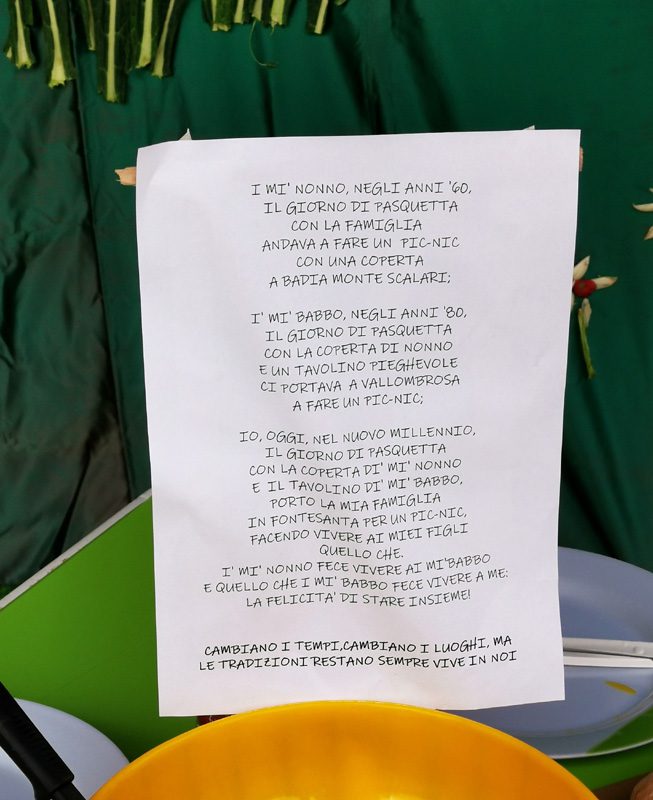 I MI' NONNO, NEGLI ANNI '60,
IL GIORNO DI PASQUETTA
CON LA FAMIGLIA
ANDAVA A FARE UN PIC-NIC
CON UNA COPERTA
A BADIA MONTE SCALARI;
I' MI' BABBO, NEGLI ANNI '80,
IL GIORNO DI PASQUETTA
CON LA COPERTA DI NONNO
E UN TAVOLINO PIEGHEVOLE
CI PORTAVA A VALLOMBROSA
A FARE UN PIC-NIC;
IO, OGGI, NEL NUOVO MILLENNIO,
IL GIORNO DI PASQUETTA
CON LA COPERTA DI' MI' NONNO
E IL TAVOLINO DI' MI' BABBO,
PORTO LA MIA FAMIGLIA
IN FONTESANTA PER UN PIC-NIC,
FACENDO VIVERE AI MIEI FIGLI
QUELLO CHE.
I' MI' NONNO FECE VIVERE AI MI'BABBO
E QUELLO CHE I MI' BABBO FECE VIVERE A ME:
LA FELICITA' DI STARE INSIEME!
CAMBIANO I TEMPI,CAMBIANO I LUOGHI, MA
LE TRADIZIONI RESTANO SEMPRE VIVE IN NOI